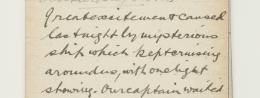 Great excitement & caused
last night by mysterious
ship which kept cruising
around us, with one light
showing. Our captain waited